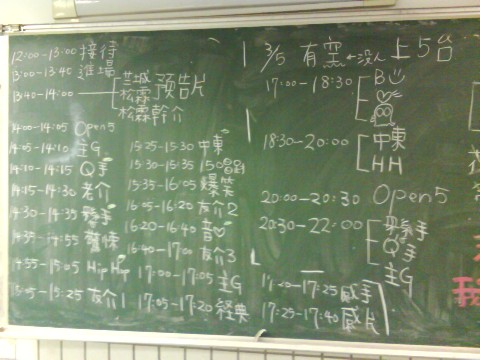 12:00-13:00 接待
13:00-13:40 進場
13:40-14:00
芷城 預告片
松霖
松霖 幹介
14:00-14:05 Open5
14:05-14:10 主G
14:10-14:15 Q手
14:15-14:30 老介
14:30-14:35 手
14:35-14:55
14:55-15:05 HipHop
15:05-15:25 友介1
15:25-15:30 中東
15:30-15:35 150
15:35-16:05 爆笑
16:05-16:20 友介2
16:20-16:40 音♡
16:40-17:00 友介3
17:00-17:05 主G
17:05-17:20 經典
17:20-17:25 感手
17:25-17:40 感片
3/5 有空←没人 上5台
17:00-18:30 B
18:30-20:00 中東
HH
20:00-20:30 Open5
20:30-22:00 手
Q手
主G